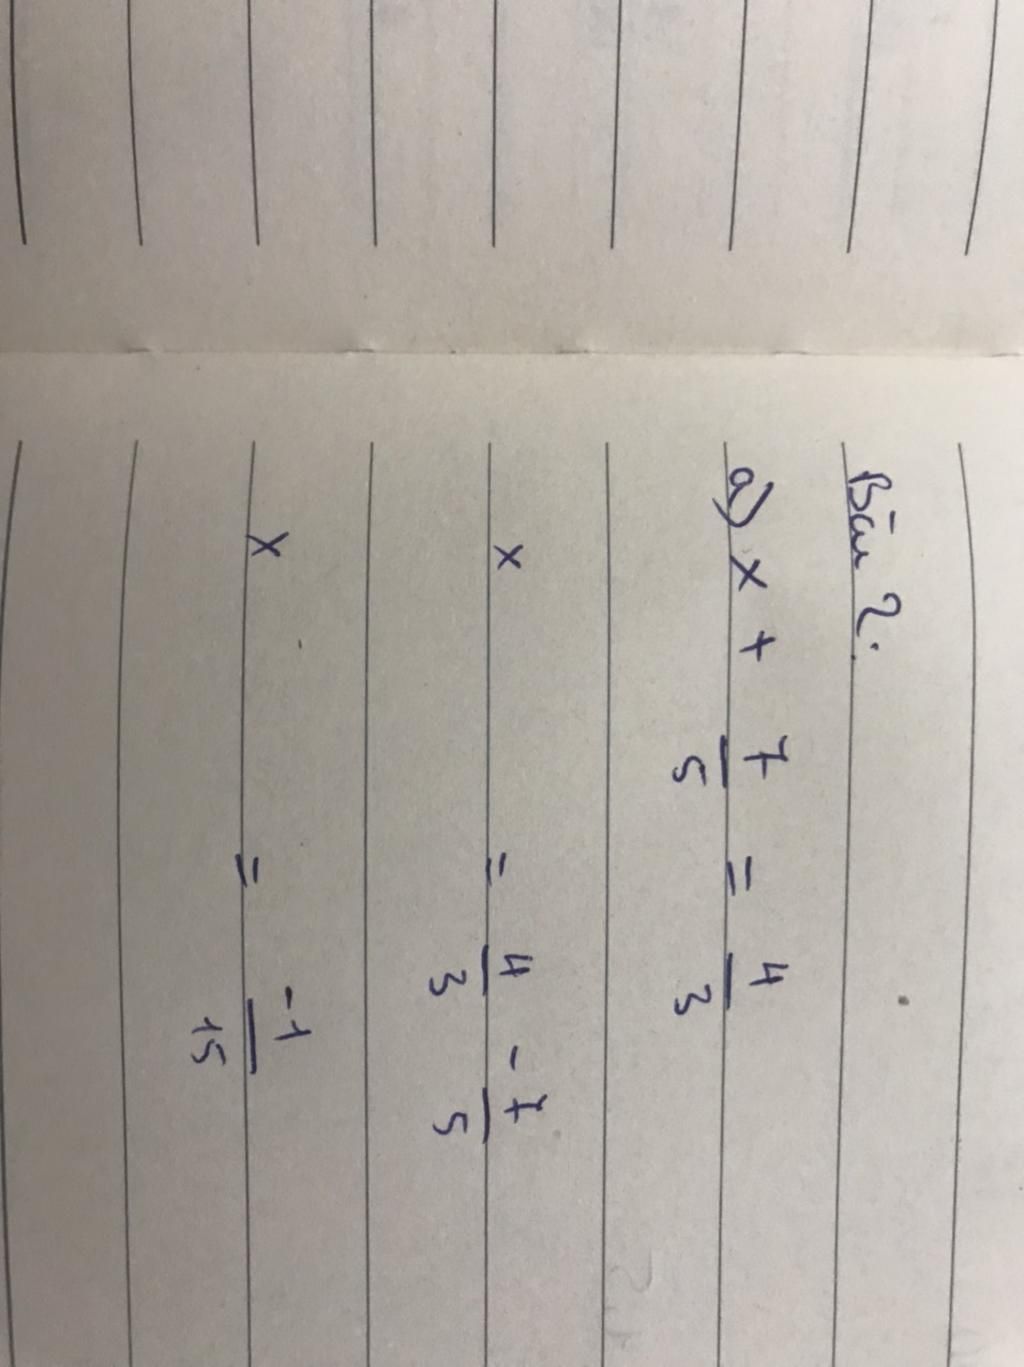 Bài 2.
a) x + 7/5 = 4/3
x = 4/3 - 7/5
x = -1/15